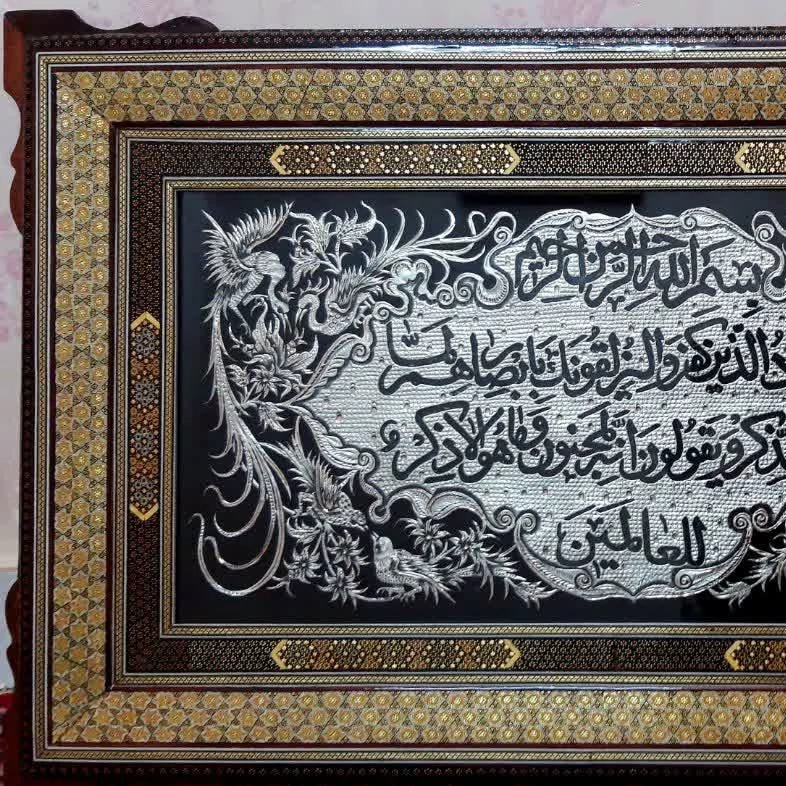 بسم الله الرحمن الرحيم
الذين كفروا ليزلقونك بابصارهم لما
الذكر ويقولون انه لمجنون وما هو الا ذكر
للعالمين